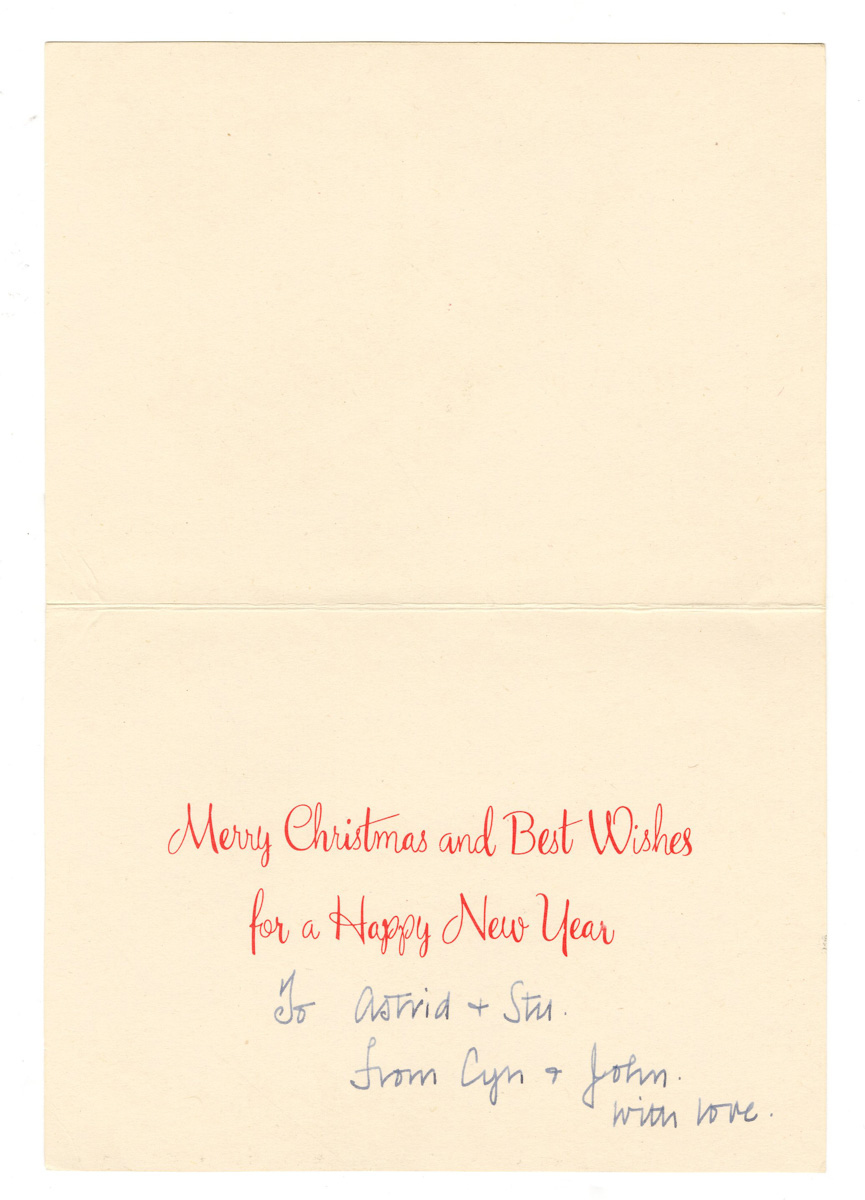 Merry Christmas and Best Wishes
for a Happy New Year
To Astrid + Stu.
From Cyn + John.
with love.